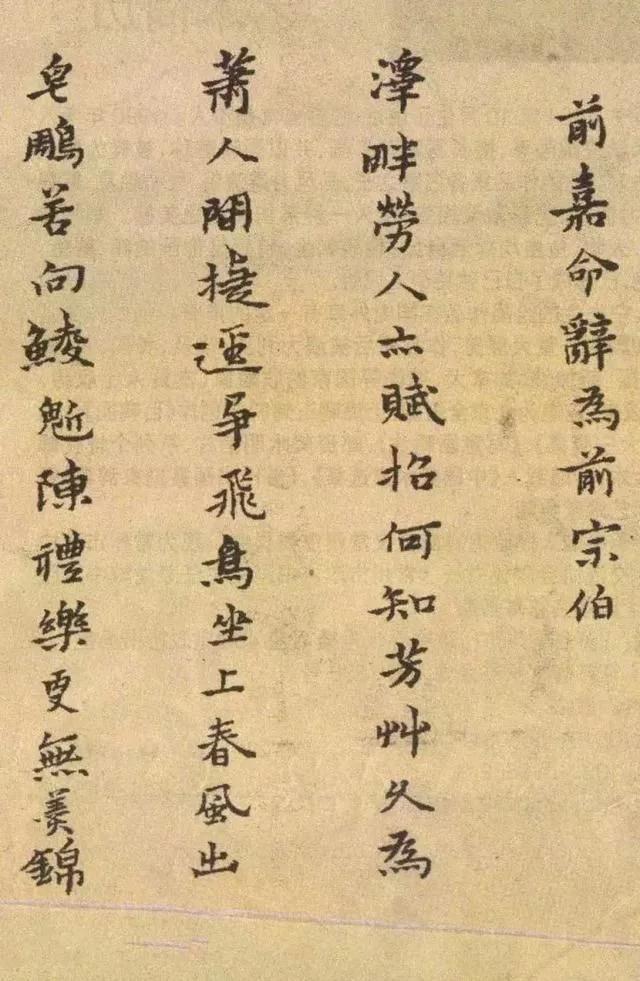 前嘉命辭為前宗伯
澤畔勞人亦賦招何知芳艸久為
蕭人間捷逕爭飛鳥坐上春風出
皂鵰苦向鯪鬿陳禮樂更無羹錦